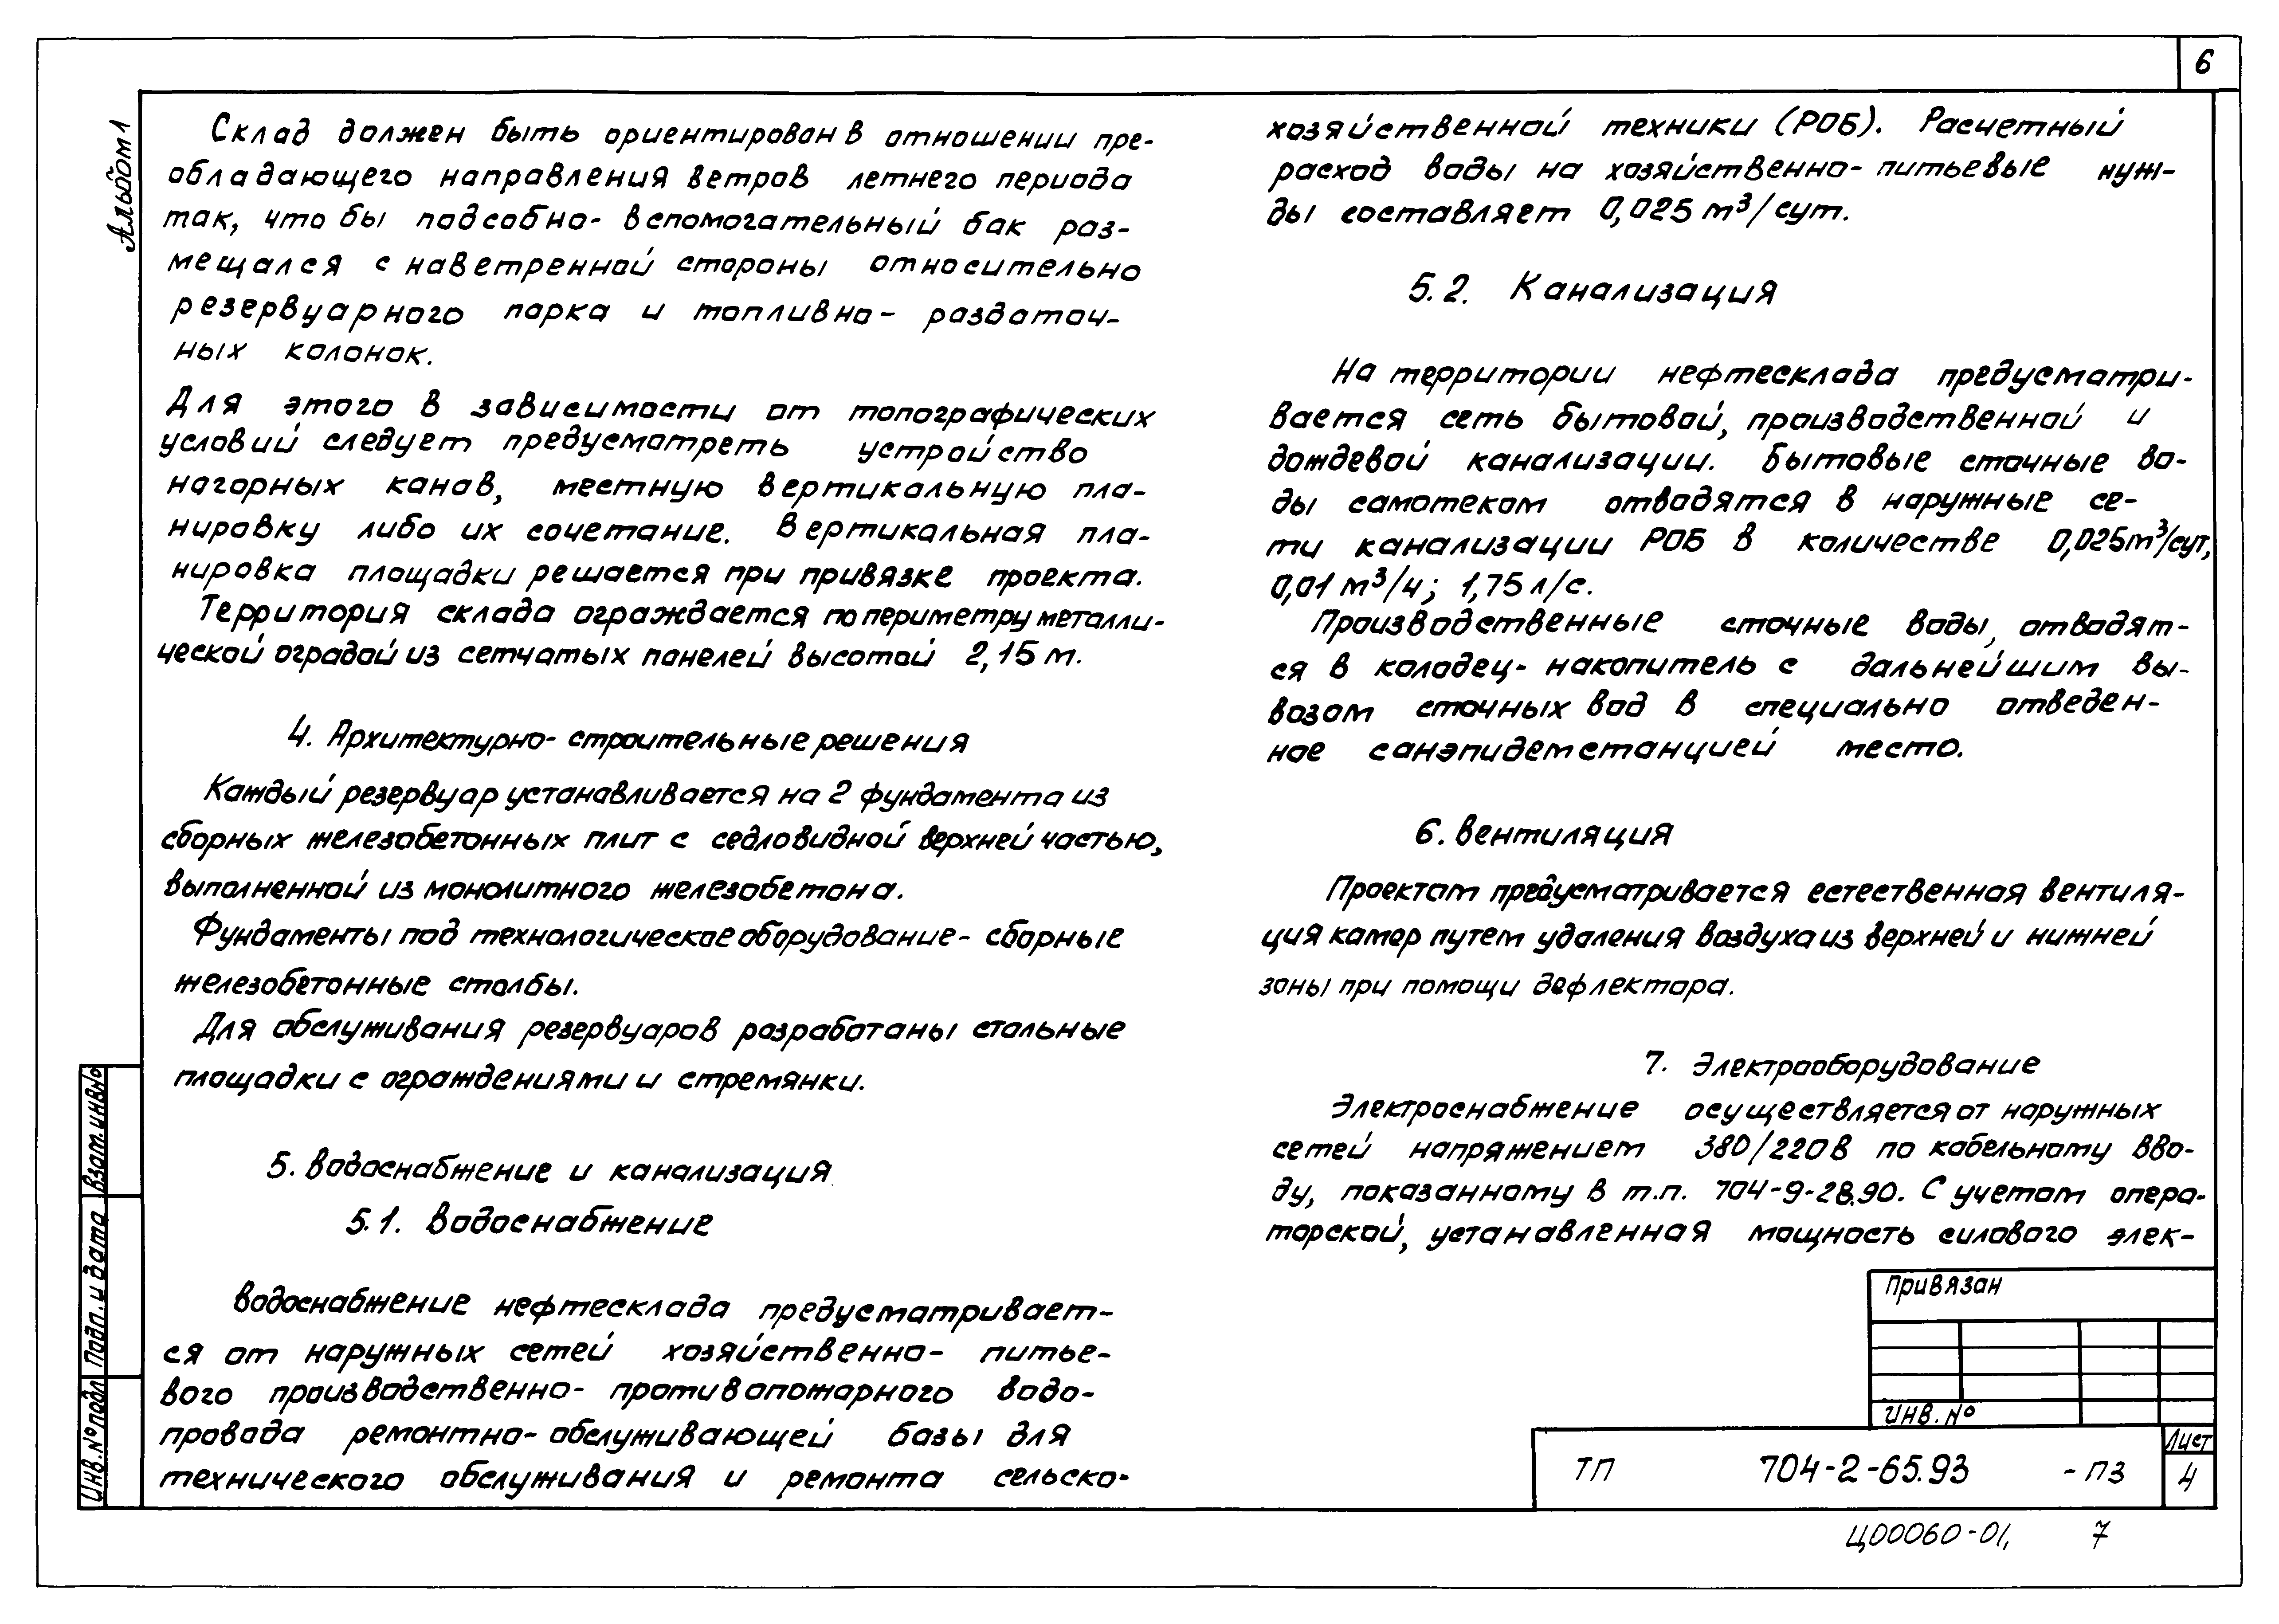 6
Альбом 1
Склад должен быть ориентирован в отношении пре-
обладающего направления ветров летнего периода
так, что бы подсобно-вспомогательный бак раз-
мещался с наветренной стороны относительно
резервуарного парка и топливно-раздаточ-
ных колонок.
Для этого в зависимости от топографических
условий следует предусмотреть устройство
нагорных канав, местную вертикальную пла-
нировку либо их сочетание. Вертикальная пла-
нировка площадки решается при привязке проекта.
Территория склада ограждается по периметру металли-
ческой оградой из сетчатых панелей высотой 2,15 м.
4. Архитектурно-строительные решения
Каждый резервуар устанавливается на 2 фундамента из
сборных железобетонных плит с седловидной верхней частью,
выполненной из монолитного железобетона.
Фундаменты под технологическое оборудование - сборные
железобетонные столбы.
Для обслуживания резервуаров разработаны стальные
площадки с ограждениями и стремянки.
5. Водоснабжение и канализация
5.1. Водоснабжение
Водоснабжение нефтесклада предусматривает-
ся от наружных сетей хозяйственно-питье-
вого производственно-противопожарного водо-
провода ремонтно-обслуживающей базы для
технического обслуживания и ремонта сельско-
хозяйственной техники (РОБ). Расчетный
расход воды на хозяйственно-питьевые нуж-
ды составляет 0,025 м³/сут.
5.2. Канализация
На территории нефтесклада предусматри-
вается сеть бытовой, производственной и
дождевой канализации. Бытовые сточные во-
ды самотеком отводятся в наружные се-
ти канализации РОБ в количестве 0,025м³/сут,
0,01 м³/ч; 1,75 л/с.
Производственные сточные воды, отводят-
ся в колодец-накопитель с дальнейшим вы-
возом сточных вод в специально отведен-
ное санэпидемстанцией место.
6. Вентиляция
Проектом предусматривается естественная вентиля-
ция камер путем удаления воздуха из верхней и нижней
зоны при помощи дефлектора.
7. Электрооборудование
Электроснабжение осуществляется от наружных
сетей напряжением 380/220В по кабельному вво-
ду, показанному в т.п. 704-9-28.90. С учетом опера-
торской, установленная мощность силового элек-
Привязан
Инв. №
ТП 704-2-65.93 -ПЗ
Лист
4
Инв.№ подл
Подп. и дата
Взам. инв №
Ц00060-01, 7